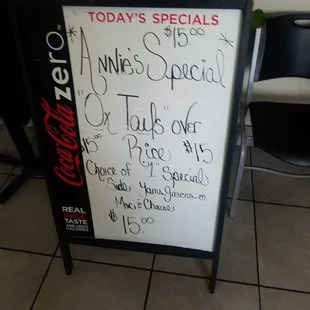 TODAY'S SPECIALS
$15.00
*Annie's Special*
"Ox Tails" over
$15 Rice $15
Choice of "1" Special
Side Yams, Greens or
Mac & Cheese
$15.00
Coca-Cola zero
REAL
TASTE
AND ZERO
CALORIES